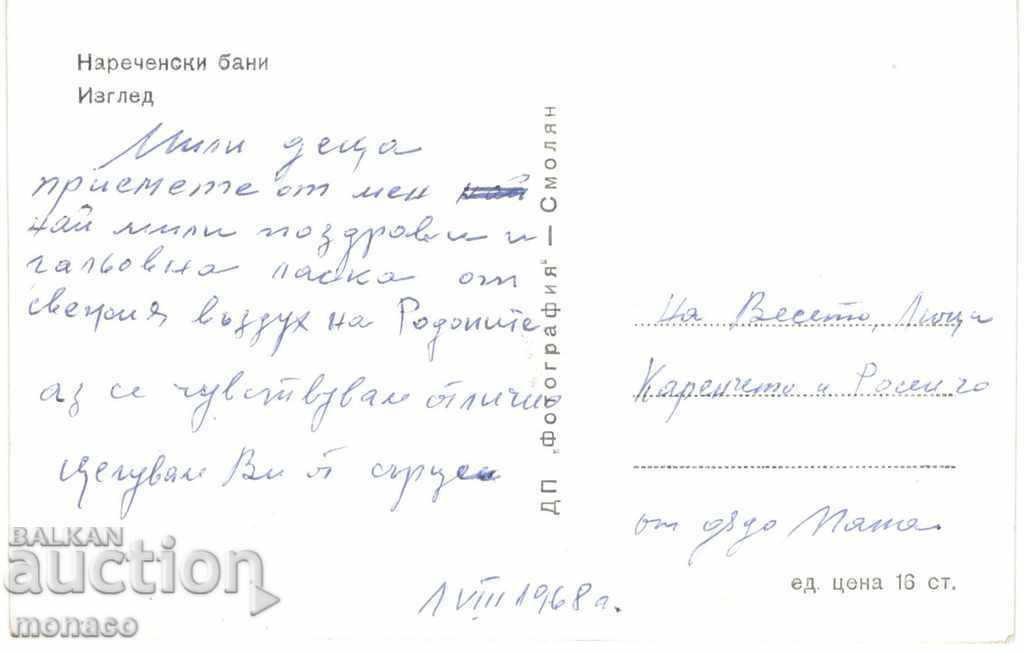 Нареченски бани
Изглед
Мили деца
приемете от мен най
най мили поздрави и
гальовна ласка от
свежия въздух на Родопите
аз се чувствувам отлично
Целувам Ви от сърце
ДП „Фотография“ — Смолян
на Весето, Люци
Каренчето и Росенчо
от дядо
1 VIII 1968 г.
ед. цена 16 ст.
BALKAN
auction
monaco